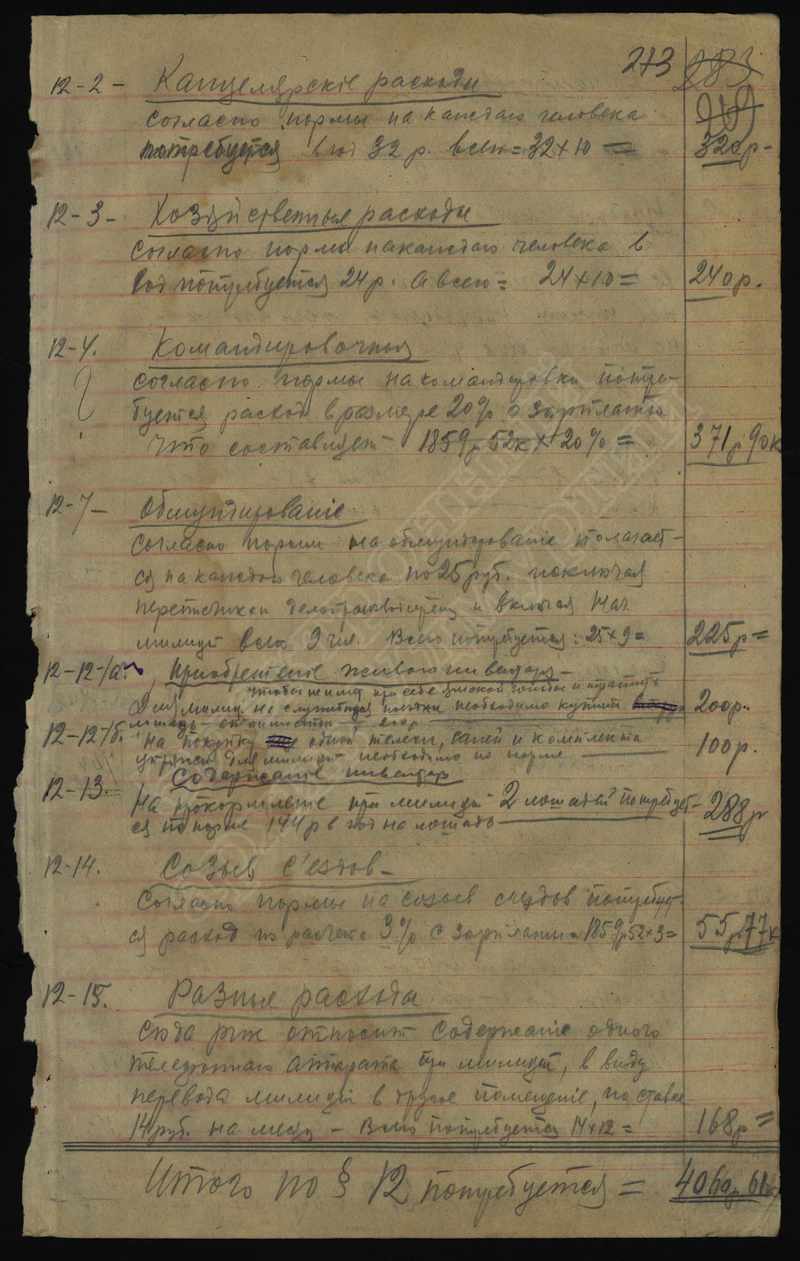 213 283
12-2- Канцелярскiе расходы
согласно нормы на каждаго человека
потребуется в год 32 р. всего = 32×10 = 320р-
12-3- Хозяйственныя расходы
согласно нормы на каждаго человека в
год потребуется 24 р. А всего = 24×10 = 240р.
12-4. Командировочныя
согласно нормы на командировки потре-
буется расход в размере 20% с зарплаты
что составляет 1859р 52к × 20% = 371р 90к
12-7- Обмундированiе
Согласно нормы на обмундированiе полагает-
ся на каждаго человека по 25 руб.
делопроизводителя и включая Нач
милиции всего 9 чел. Всего потребуется: 25×9= 225р=
12-12-/а. Приобретенiе живого инвентаря-
необходимо купить 200р.
12-12/б. на покупку одной телеги, саней и комплекта
упряжи для милиции необходимо по норме 100р.
Содержанiе инвентаря
12-13. На прокормленiе при милиции 2 лошадей потребует-
ся по норме 144р в год на лошадь 288р
12-14. Созыв с'ездов-
Согласно нормы на созыв съездов потребует-
ся расход из расчета 3% с зарплаты 1859р 52×3= 55р.77к
12-15. Разныя расходы
Сюда относит содержанiе одного
телефоннаго аппарата при милиции, в виду
перевода милиции в другое помещенiе, по ставке
14 руб. на месяц - Всего потребуется 14×12= 168р=
Итого по § 12 потребуется = 4060р. 61к